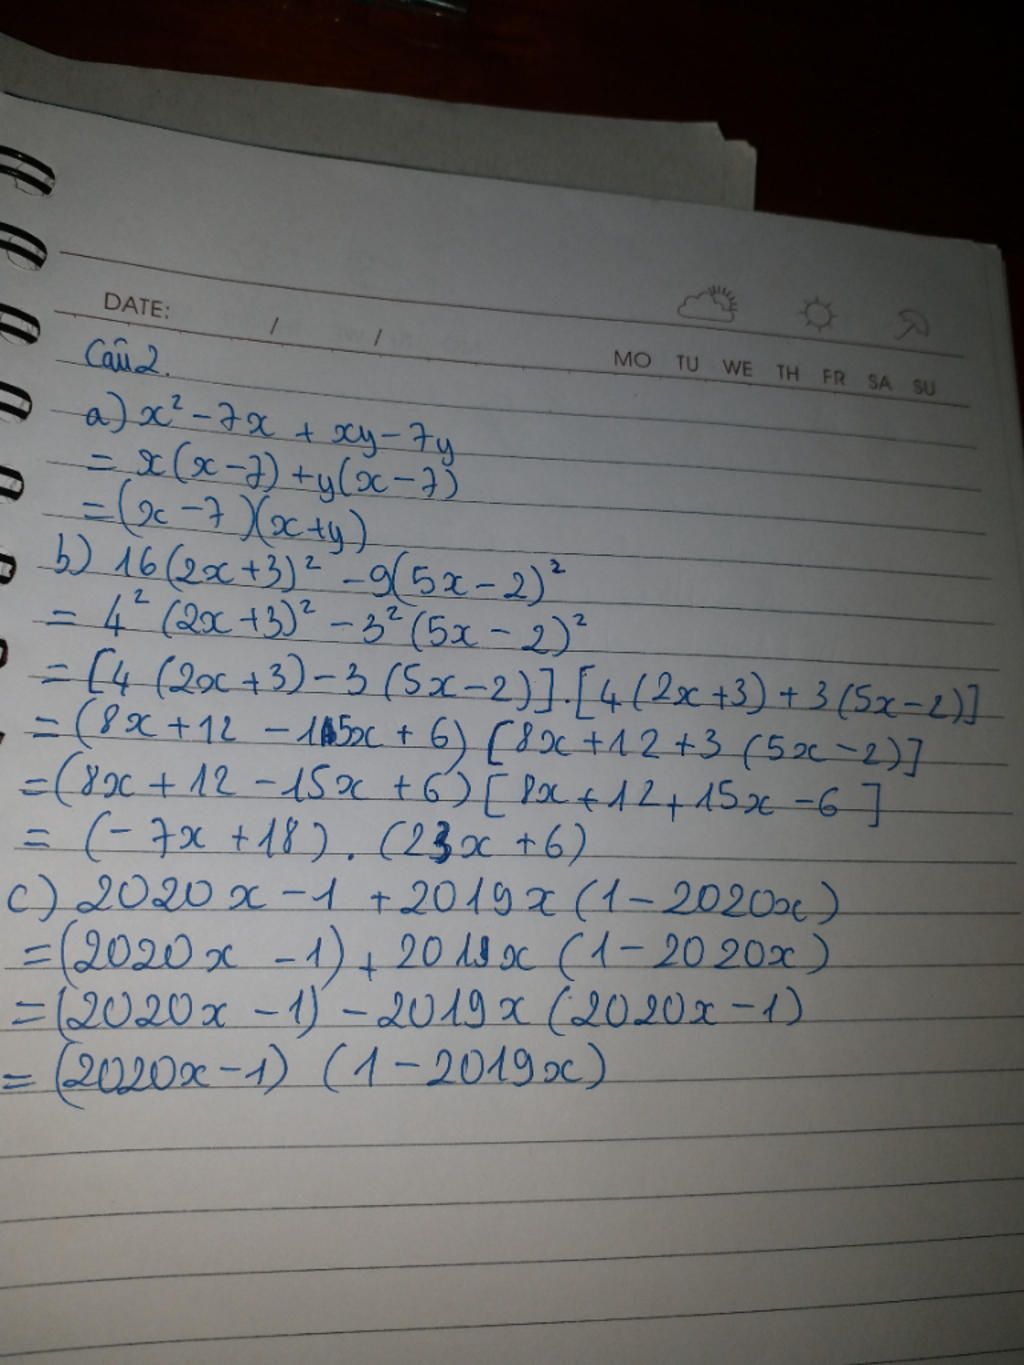 DATE: / /
MO TU WE TH FR SA SU
Câu 2.
a) x² - 7x + xy - 7y
= x(x - 7) + y(x - 7)
= (x - 7)(x + y)
b) 16(2x + 3)² - 9(5x - 2)²
= 4² (2x + 3)² - 3² (5x - 2)²
= [4 (2x + 3) - 3 (5x - 2)] . [4 (2x + 3) + 3 (5x - 2)]
= (8x + 12 - 15x + 6) [8x + 12 + 3 (5x - 2)]
= (8x + 12 - 15x + 6) [8x + 12 + 15x - 6]
= (- 7x + 18) . (23x + 6)
c) 2020x - 1 + 2019x (1 - 2020x)
= (2020x - 1) + 2019x (1 - 2020x)
= (2020x - 1) - 2019x (2020x - 1)
= (2020x - 1) (1 - 2019x)